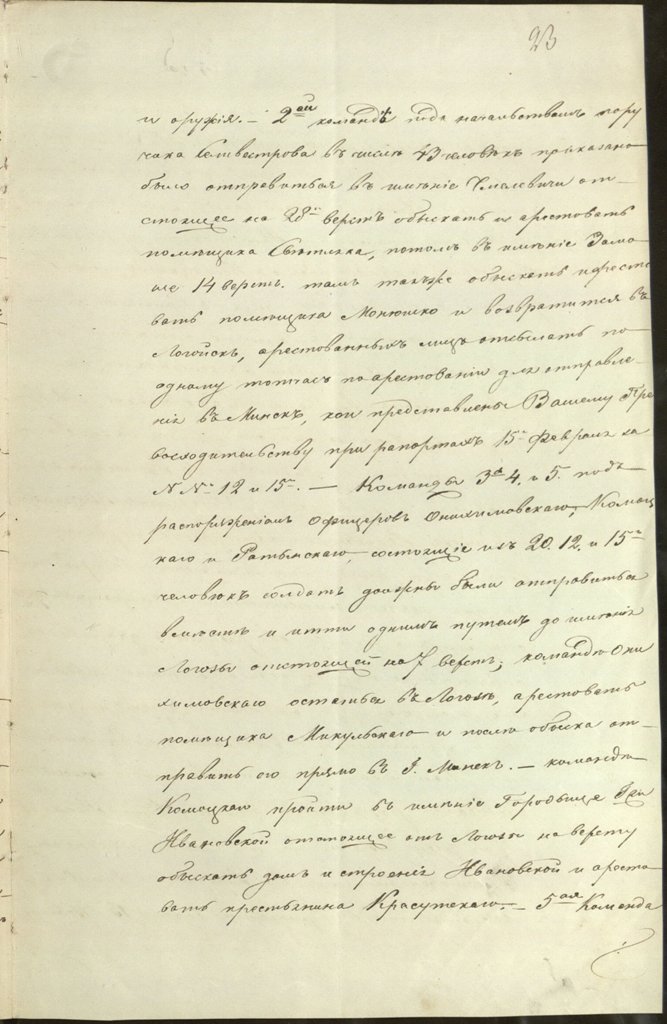 23
и оружія. — 2ой командѣ подъ начальствомъ пору
чика Селивестрова въ числѣ 43 человѣкъ приказано
было отправиться въ имѣніе Смалевичи от-
стоящее на 28 верстъ обыскать и арестовать
помѣщика Свентецка, потомъ въ имѣніе
14 верстъ. тамъ также обыскать и аресто
вать помѣщика Монюшко и возвратится въ
Логойскъ, арестованныхъ лицъ отсылать по
одному тотчасъ по арестованіи для отправле
нія въ Минскъ, кои представлены Вашему Пре
восходительству при рапортахъ 15 Февраля за
№№ 12 и 15. — Команды 3я 4. и 5. подъ
распоряженіемъ офицеровъ Онихимовскаго, Комоц
каго и Ратынскаго, состоящіе изъ 20. 12. и 15
человѣкъ солдатъ должны были отправиться
вмѣстѣ и итти однимъ путемъ до имѣнія
Логозы отстоящей на 7 верстъ; командѣ Они
химовскаго остаться въ Логозѣ, арестовать
помѣщика Микульскаго и послѣ обыска от-
править его прямо въ Г. Минскъ. — командѣ
Комоцкаго пройти въ имѣніе Городище Г-жи
Ивановской отстоящее отъ Логозы на версту
обыскать домъ и строенія Ивановской и аресто
вать крестьянина Красутскаго. — 5ая Команда